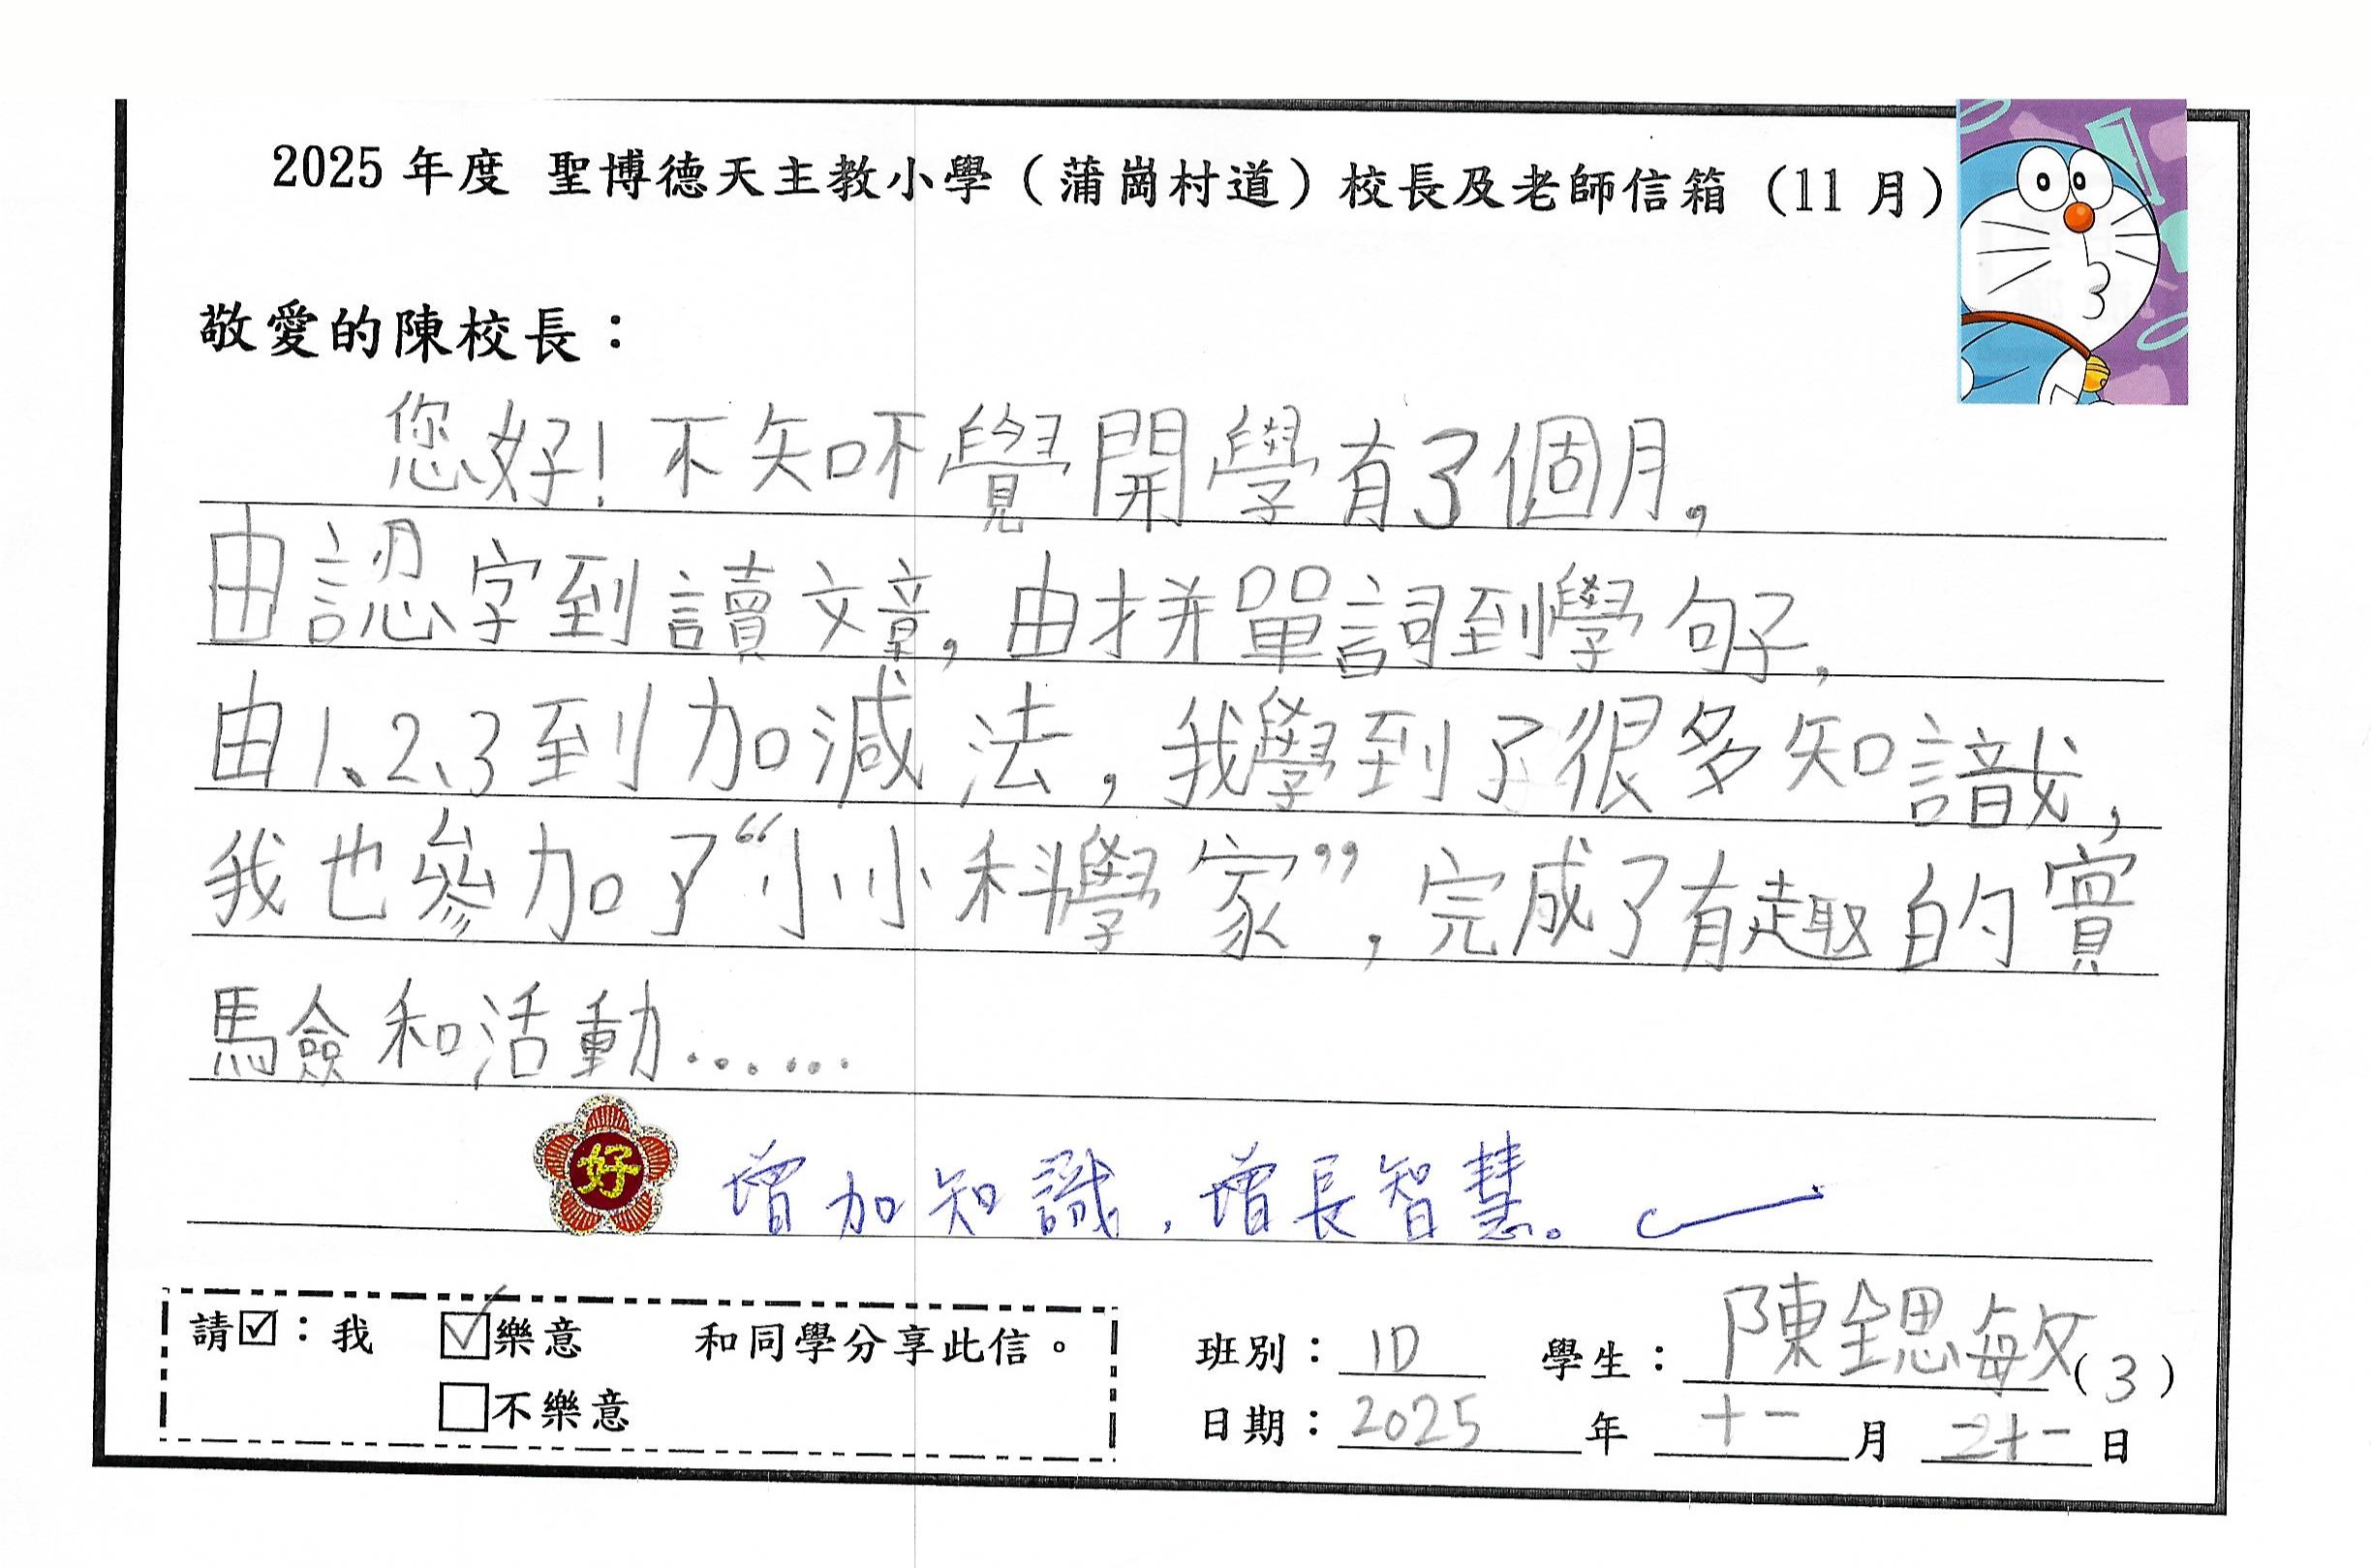 2025 年度 聖博德天主教小學（蒲崗村道）校長及老師信箱（11 月）
敬愛的陳校長：
您好！不知不覺開學有了個月，
由認字到讀文章，由拼單詞到學句子，
由1、2、3到加減法，我學到了很多知識，
我也參加了“小小科學家”，完成了有趣的實
驗和活動……
好 增加知識，增長智慧。
請☑：我 ☑樂意 和同學分享此信。
□不樂意
班別：1D 學生：陳鍶敏（3）
日期：2025年十一月二十一日